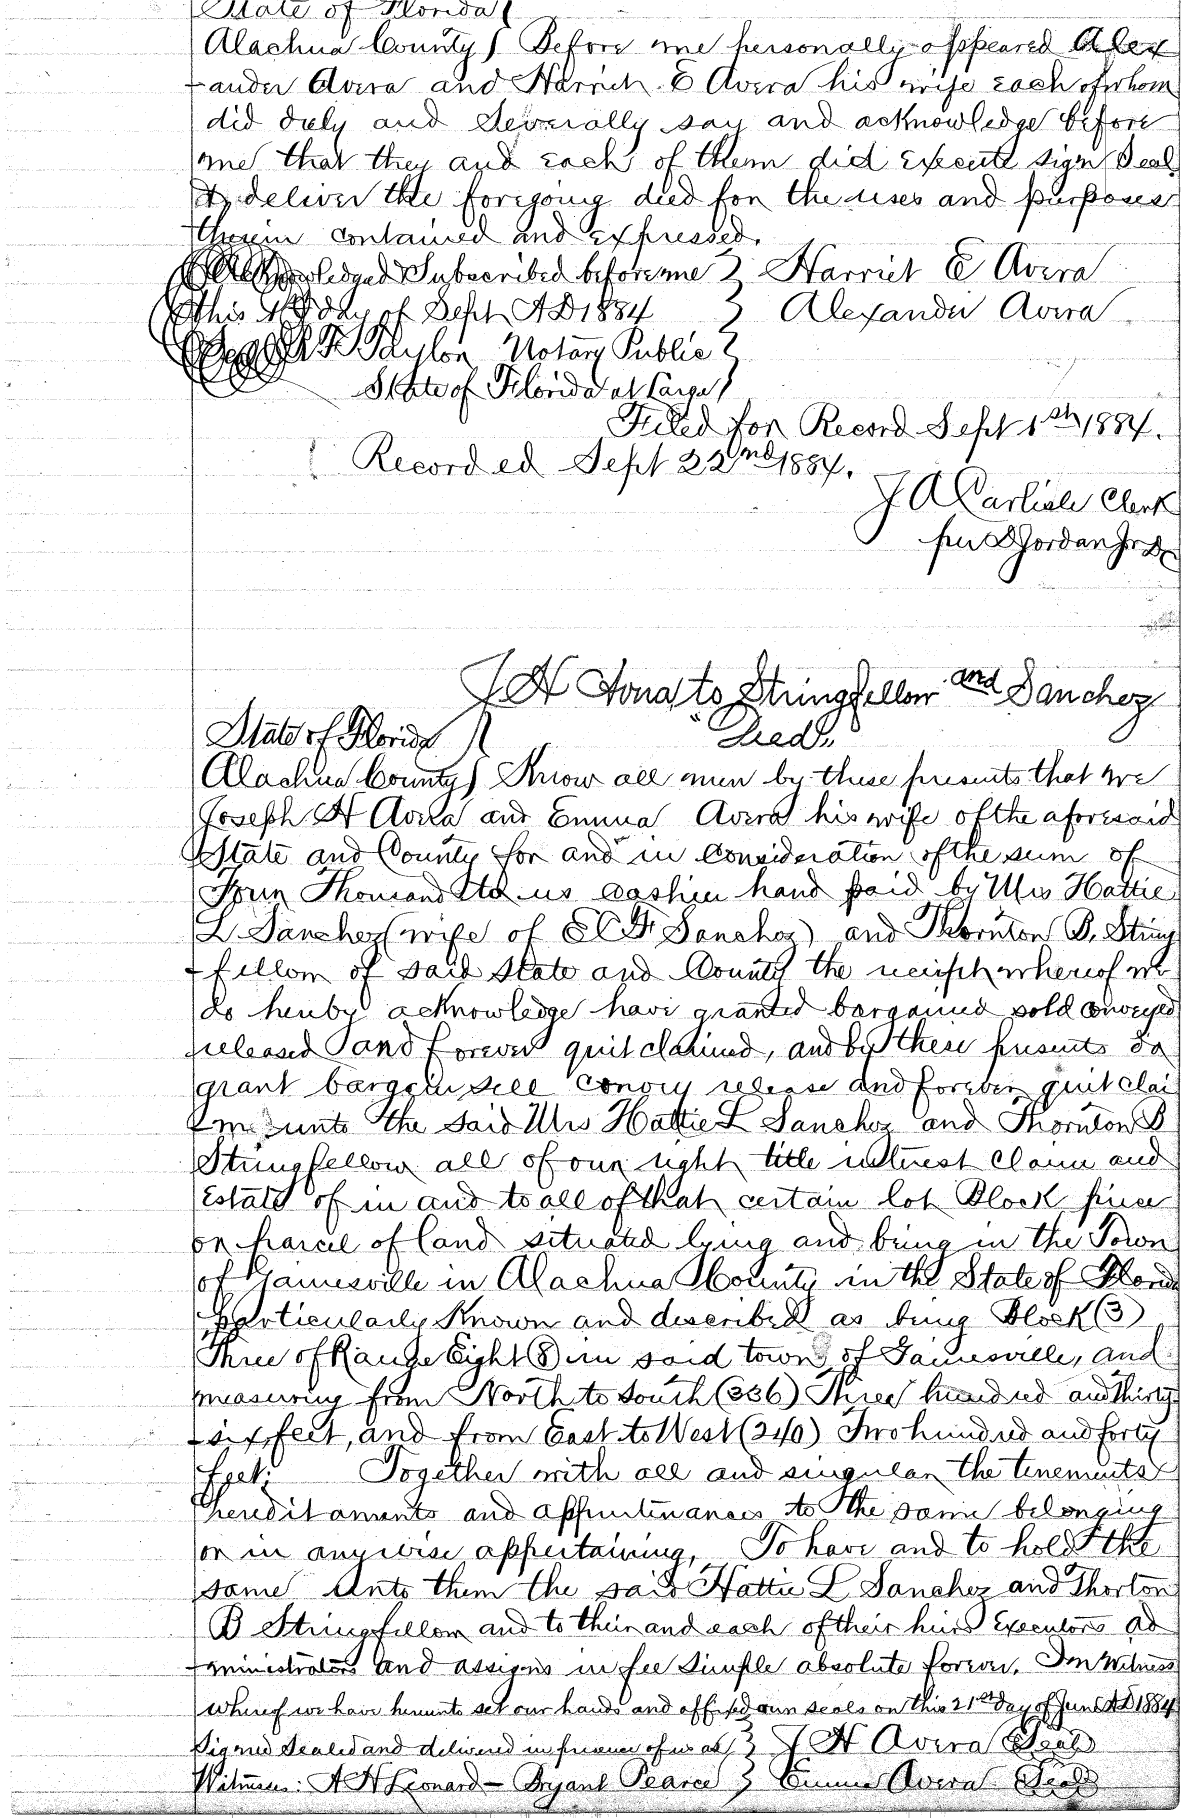 State of Florida
Alachua County Before me personally appeared Alex
ander Avera and Harriet E Avera his wife each of whom
did duly and severally say and acknowledge before
me that they and each of them did execute sign Seal
& deliver the foregoing deed for the uses and purposes
therein contained and expressed.
Acknowledged & Subscribed before me Harriet E Avera
this day of Sept AD 1884 Alexander Avera
Taylor Notary Public
State of Florida at Large
Filed for Record Sept 1st 1884.
Recorded Sept 22nd 1884.
J A Carlisle Clerk
per Jordan Jr
J H to Stringfellow and Sanchez
State of Florida "Deed"
Alachua County Know all men by these presents that we
Joseph H Avera and Emma Avera his wife of the aforesaid
State and County for and in Consideration of the sum of
Four Thousand to us cash in hand paid by Mrs Hattie
L Sanchez (wife of E C F Sanchez) and Thornton B. String
fellow of said State and County the receipt whereof we
do hereby acknowledge have granted bargained sold conveyed
released and forever quit claimed, and by these presents do
grant bargain sell convey release and forever quit clai
m unto the said Mrs Hattie L Sanchez and Thornton B
Stringfellow all of our right title interest claim and
Estate of in and to all of that certain lot Block piece
or parcel of land situated lying and being in the Town
of Gainesville in Alachua County in the State of Florida
Particularly Known and described as being Block (3)
Three of Range Eight (8) in said town of Gainesville, and
measuring from North to South (336) Three hundred and thirty
six feet, and from East to West (240) Two hundred and forty
feet; Together with all and singular the tenements
hereditaments and appurtenances to the same belonging
or in anywise appertaining, To have and to hold the
same Unto them the said Hattie L Sanchez and Thorton
B Stringfellow and to their and each of their heirs Executors ad
ministrators and assigns in fee Simple absolute forever. In Witness
whereof we have hereunto set our hands and affixed our seals on this 21st day of June AD 1884
Signed Sealed and delivered in presence of us as J H Avera Seal
Witnesses: A H Leonard - Bryant Pearce Emma Avera Seal